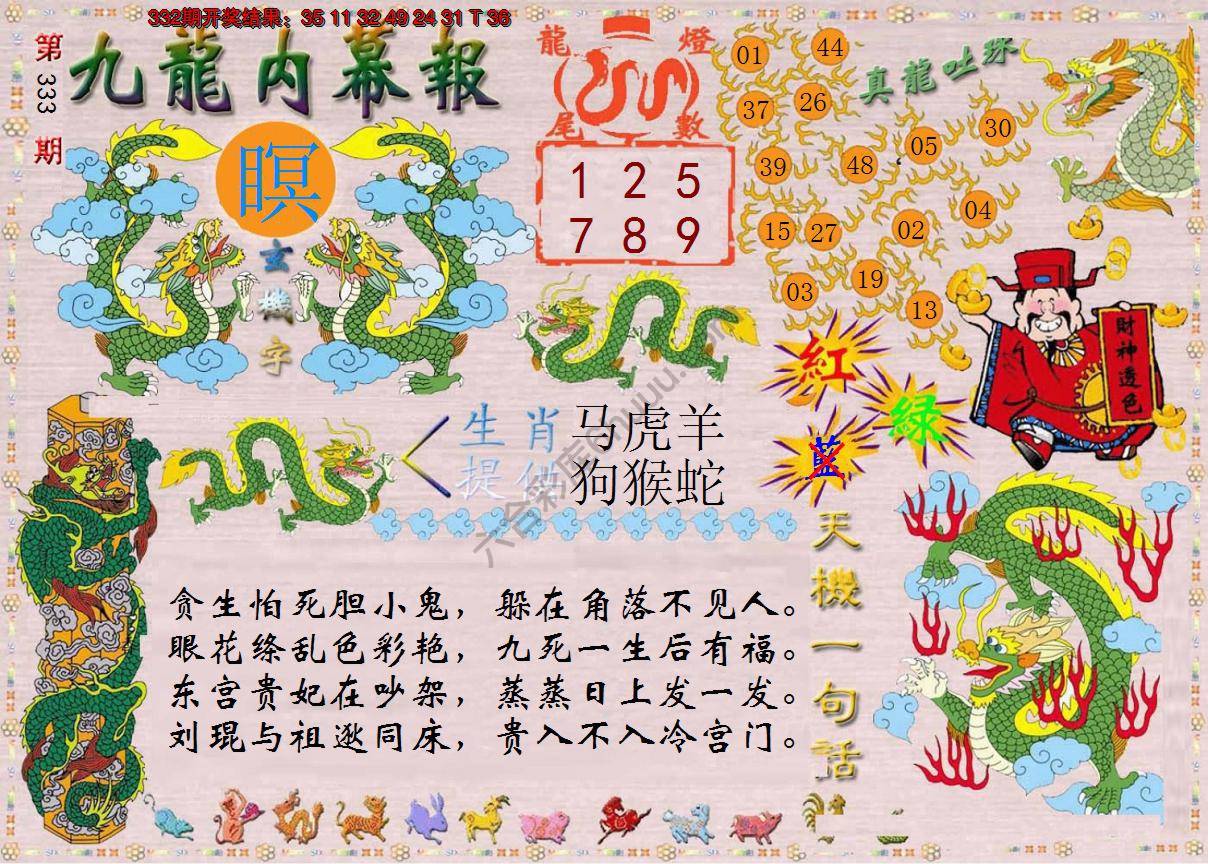 332期开奖结果：35 11 32 49 24 31 T 36
第333期
九龍内幕報
瞑
玄機字
龍燈
尾數
1 2 5
7 8 9
真龍吐珠
01 44
37 26
39 48 05 30
15 27 02 04
03 19 13
財神透色
紅
綠
藍
生肖 马虎羊
提供 狗猴蛇
贪生怕死胆小鬼，躲在角落不见人。
眼花绦乱色彩艳，九死一生后有福。
东宫贵妃在吵架，蒸蒸日上发一发。
刘琨与祖逖同床，贵入不入冷宫门。
天機一句話